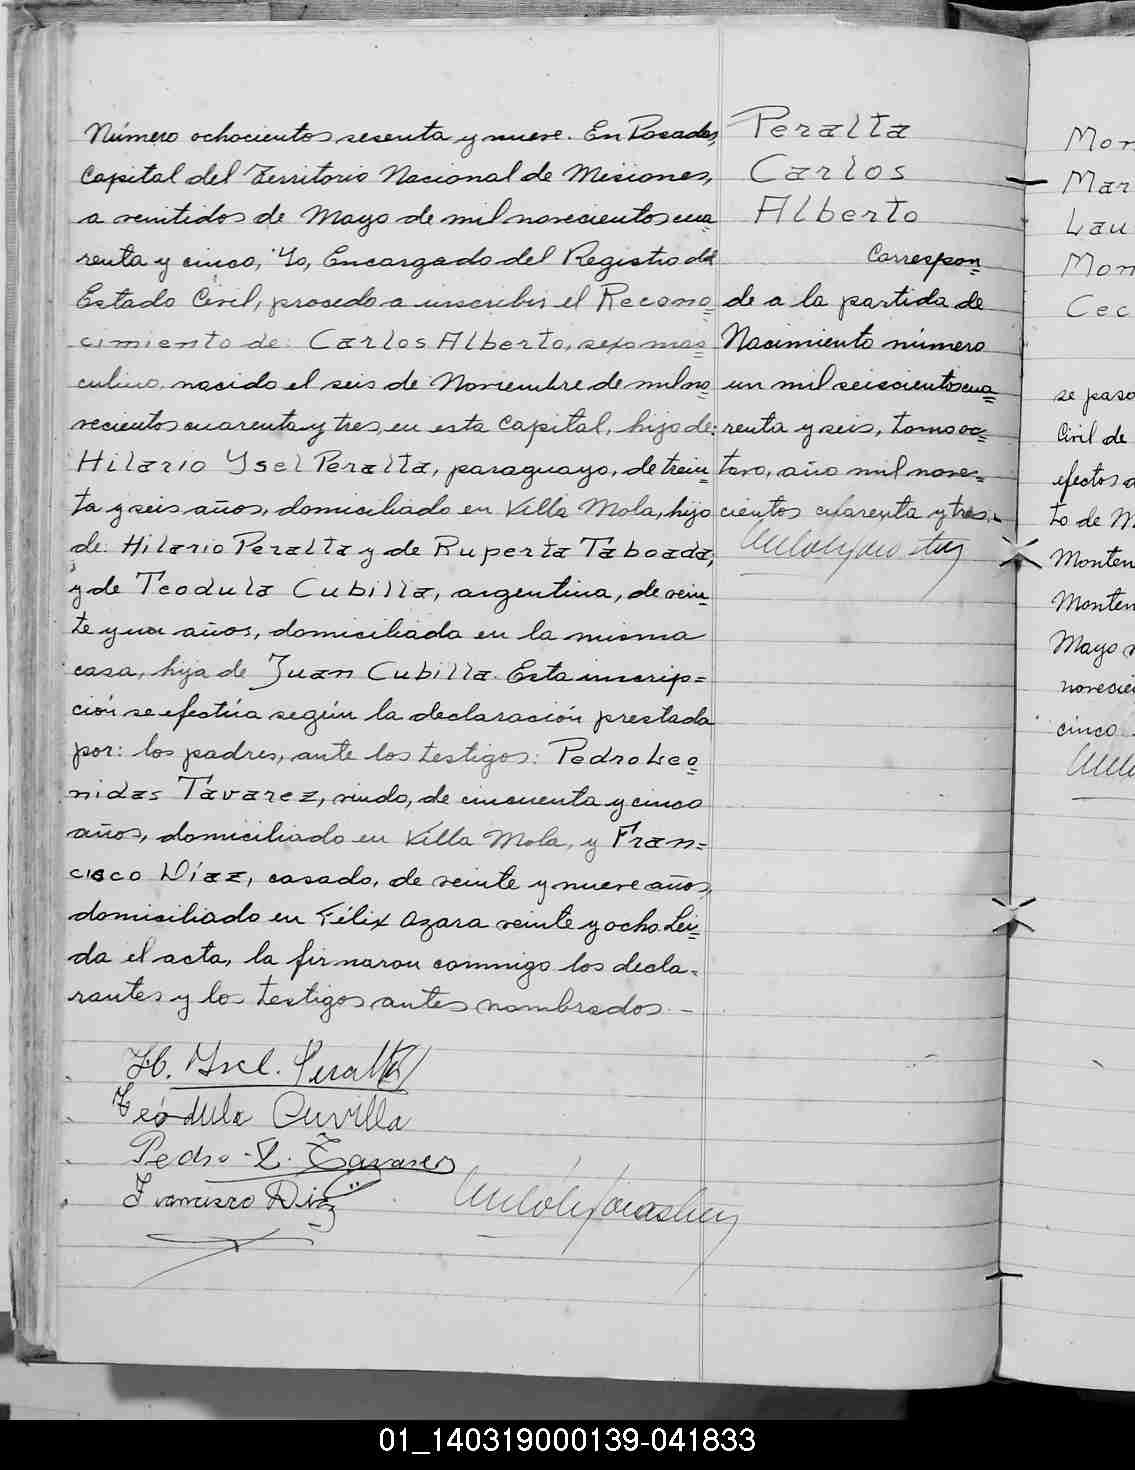 Número ochocientos sesenta y nueve. En Posadas,
Capital del Territorio Nacional de Misiones,
a veintidos de Mayo de mil novecientos cua
renta y cinco, Yo, Encargado del Registro del
Estado Civil, procedo a inscribir el Recono
cimiento de: Carlos Alberto, sexo mas
culino, nacido el seis de Noviembre de mil no
vecientos cuarenta y tres, en esta Capital, hijo de:
Hilario Ysel Peralta, paraguayo, de trein
ta y seis años, domiciliado en Villa Mola, hijo
de: Hilario Peralta y de Ruperta Taboada,
y de Teodula Cubilla, argentina, de vein
te y un años, domiciliada en la misma
casa, hija de Juan Cubilla. Esta inscrip=
ción se efectúa según la declaración prestada
por: los padres, ante los testigos: Pedro Leo
nidas Tavarez, viudo, de cincuenta y cinco
años, domiciliado en Villa Mola, y Fran=
cisco Díaz, casado, de veinte y nueve años,
domiciliado en Félix Azara veinte y ocho. Leí
da el acta, la firmaron conmigo los decla=
rantes y los testigos antes nombrados. -
H. Ysel. Peralta
Teódula Cuvilla
Pedro L. Tavarez
Francisco Diaz
Peralta
Carlos
Alberto
Correspon
de a la partida de
Nacimiento número
un mil seiscientos cua
renta y seis, tomo oc
tavo, año mil nove=
cientos cuarenta y tres.-
Mon
Mar
Lau
Mon
Cec
se paso
Civil de
efectos d
to de M
Monten
Monten
Mayo
novecie
cinco
01_140319000139-041833